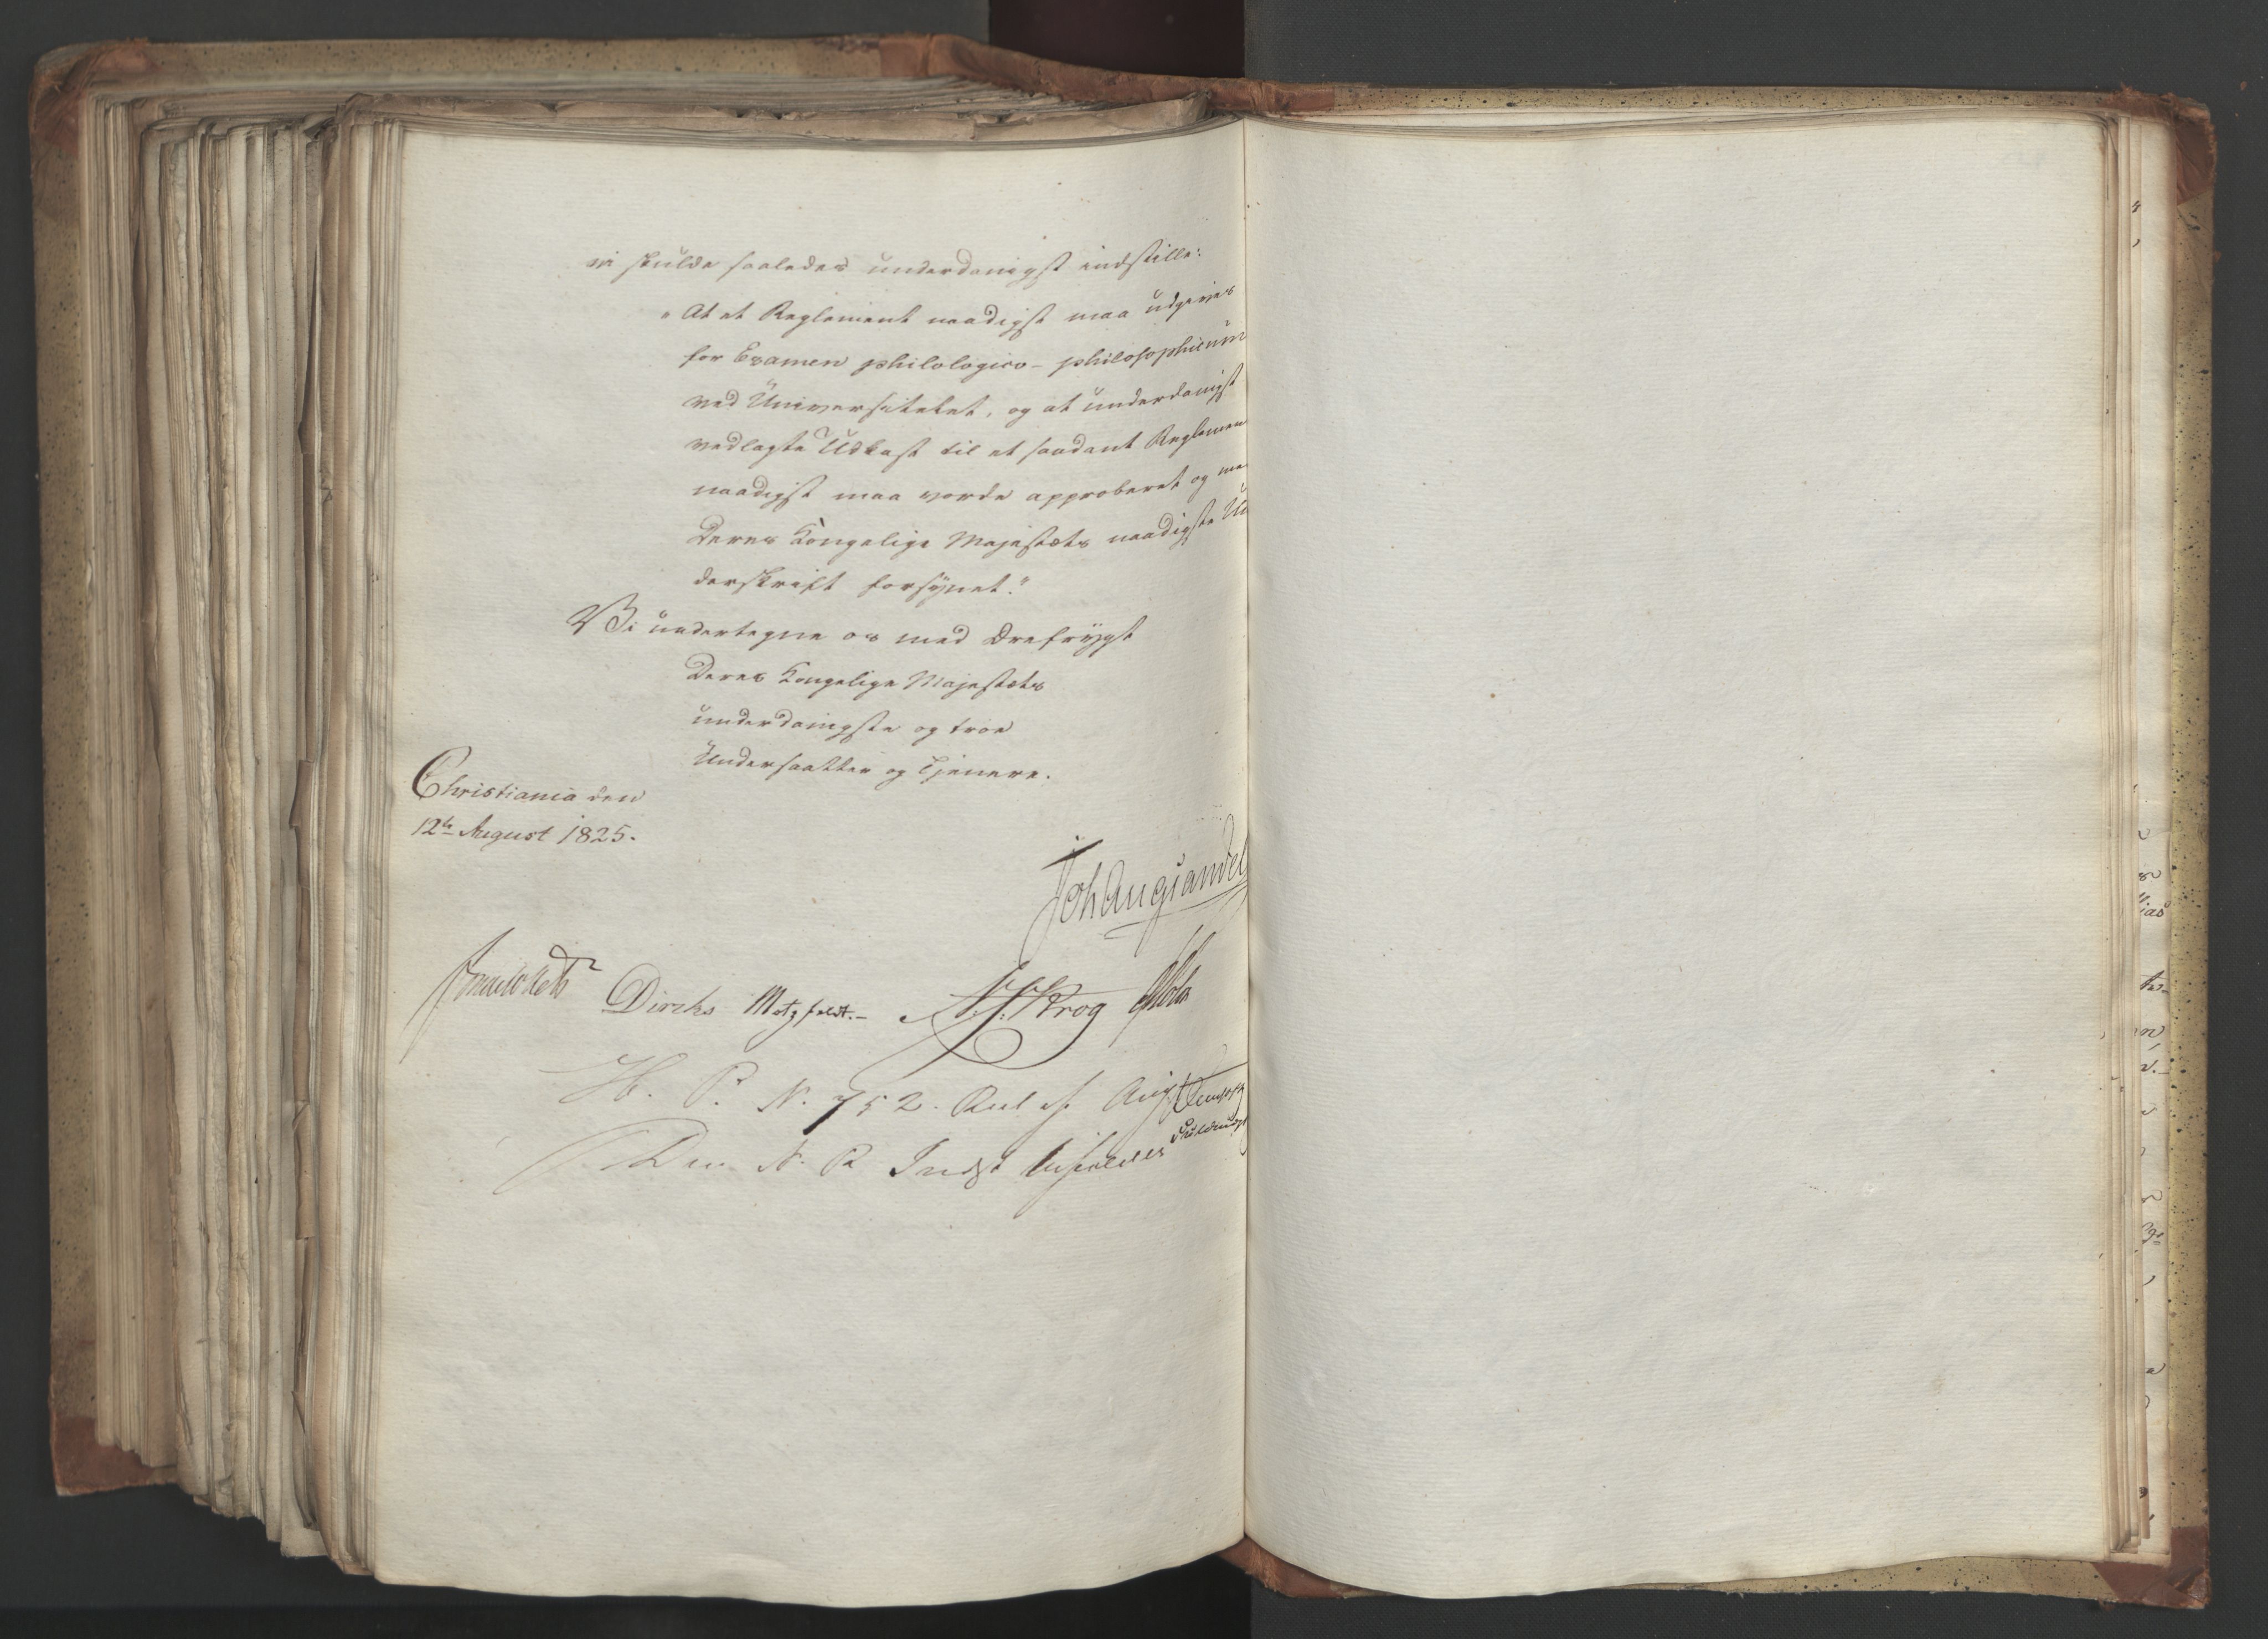 vi skulde saaledes underdanigst indstille:
"At et Reglement naadigst maa udgives
for Examen philologico-philosophicum
ved Universitetet, og at underdanigst
vedlagte Udkast til et saadant Reglemen
naadigst maa vorde approberet og me
Deres Kongelige Majestæts naadigste Un
derskrift forsynet."
Vi undertegne os med Ærefrygt
Deres Kongelige Majestæts
underdanigste og troe
Undersaatter og Tjenere.
Christiania den
12te August 1825.
Joh Aug Sandel
Dircks Motzfeldt.- Krog
P. N. 752. Aug
Den N. R Indst bifaldes